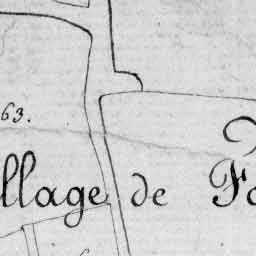 63.
llage de Fo